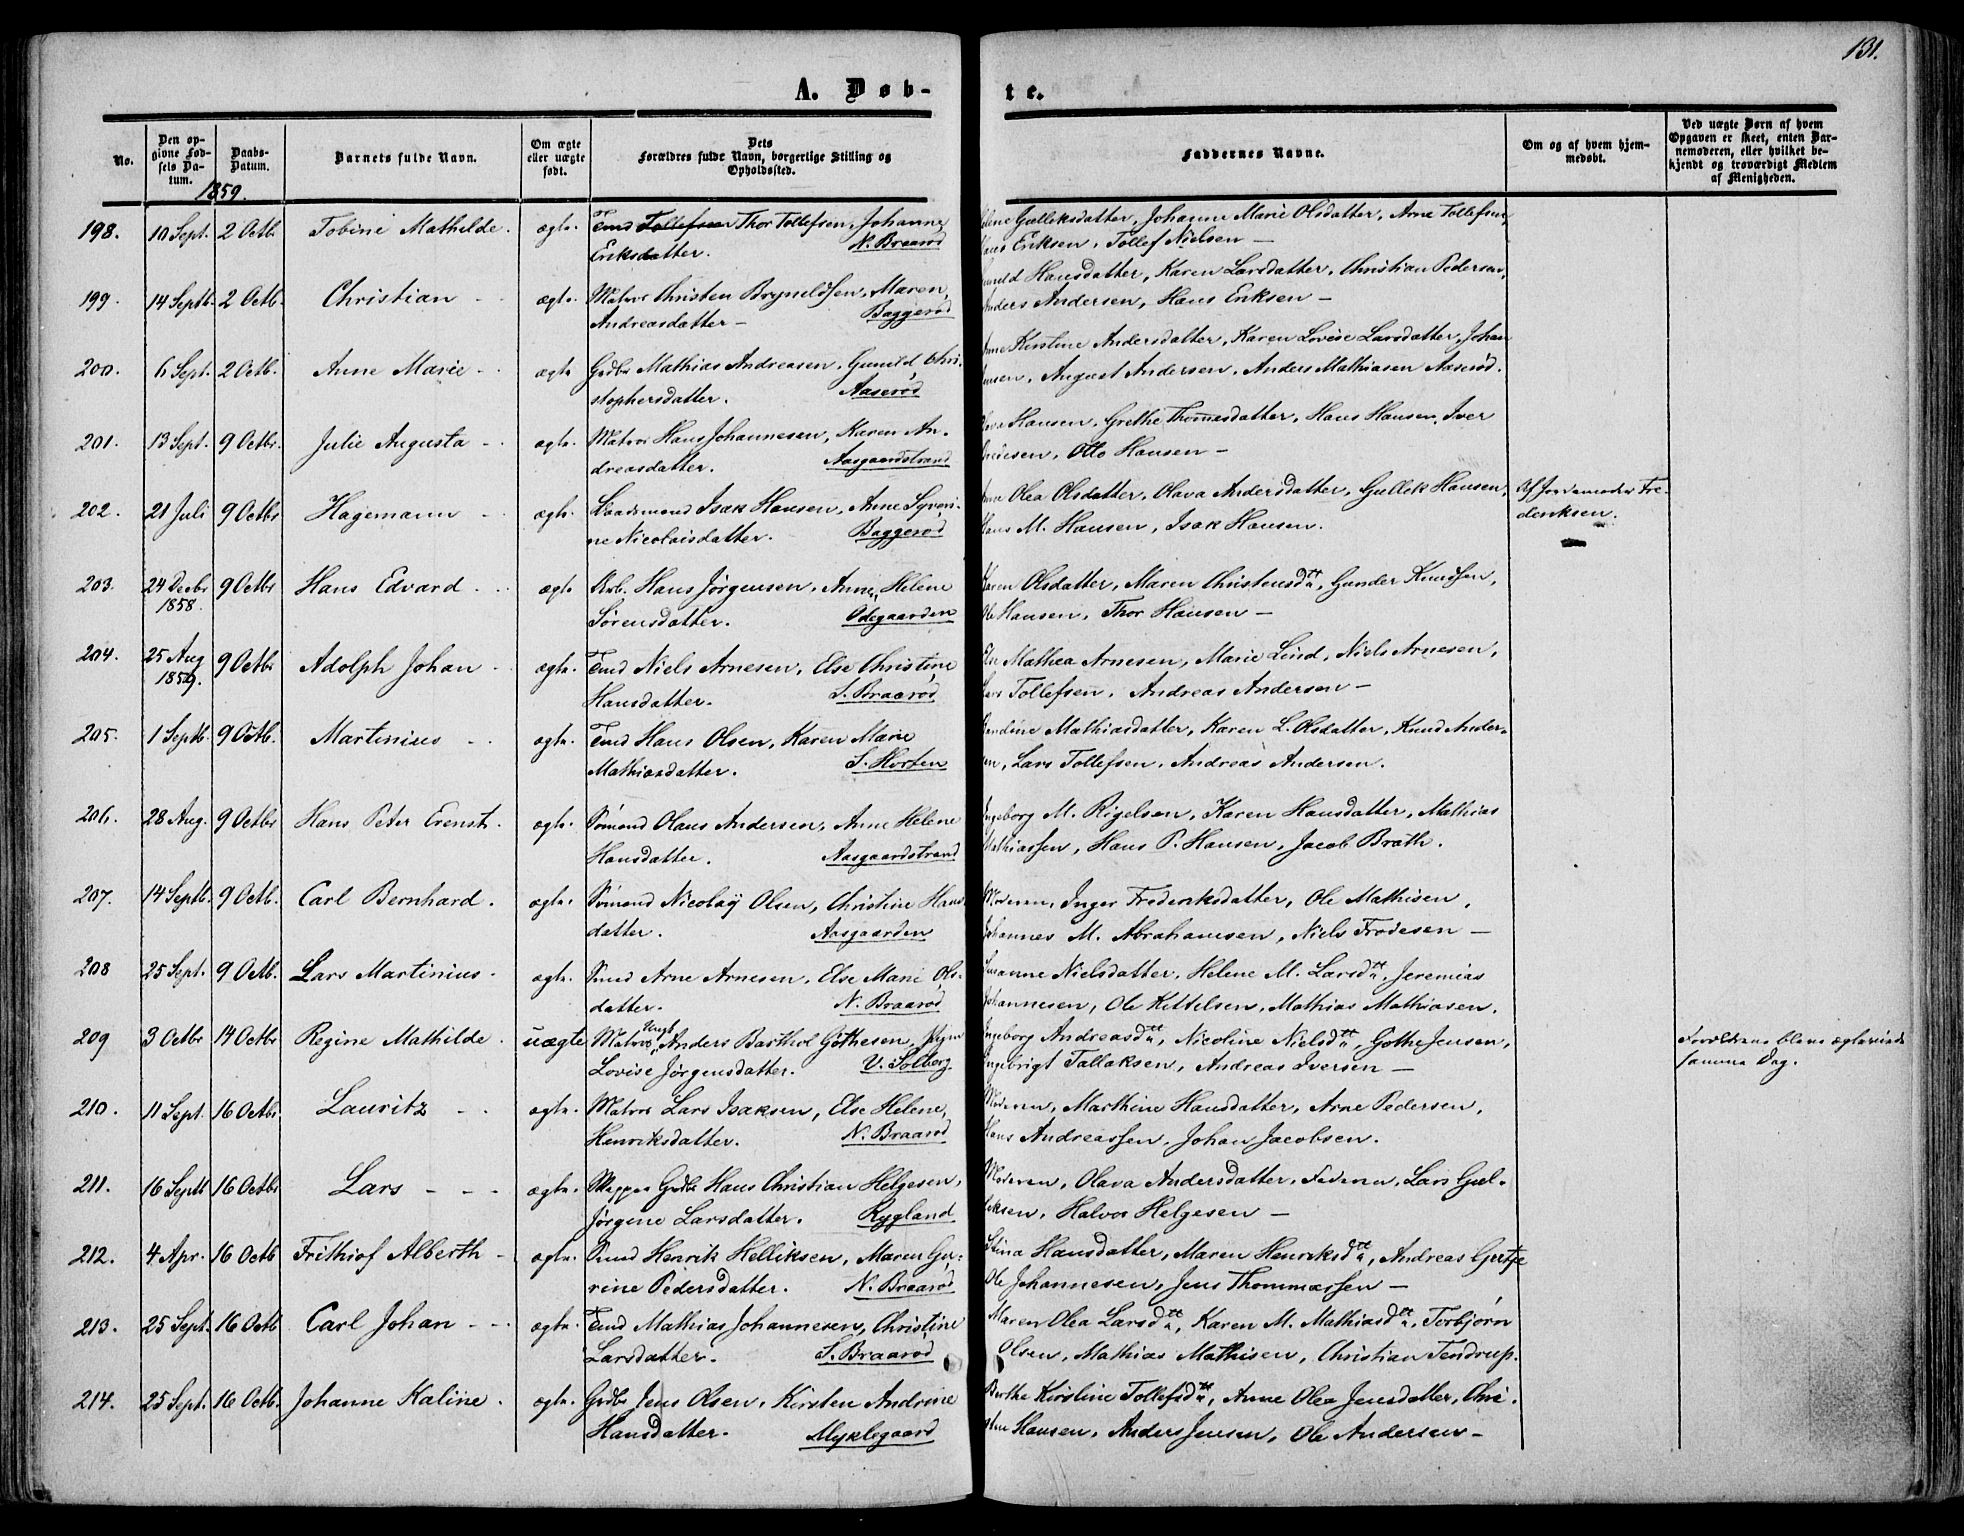 131.
A. Døb-
te.
No.
Den opgivne Fødsels Datum.
Daabs-Datum.
Barnets fulde Navn.
Om ægte eller uægte født.
Dets Forældres fulde Navn, borgerlige Stilling og Opholdssted.
Faddernes Navne.
Om og af hvem hjemmedøbt.
Ved uægte Børn af hvem Opgaven er skeet, enten Barnemoderen, eller hvilket bekjendt og troværdigt Medlem af Menigheden.
1859.
198. 10 Sept. 2 Octb. Tobine Mathilde. ægte. Tollefsen Thor Tollefsen, Johanne
Eriksdatter. N. Braarød
Gulleksdatter, Johanne Marie Olsdatter, Arne Tollefsen,
Eriksen, Tollef Nielsen —
199. 14 Septb. 2 Octb. Christian - - ægte. Matros Christen Bryneldsen, Maren
Andreasdatter — Baggerød
Hansdatter, Karen Larsdatter, Christian Pedersen,
Anders Andersen, Hans Eriksen —
200. 6 Sept. 2 Octb. Anne Marie - - ægte Gdbr Mathias Andreasen, Gunild Chri-
stophersdatter. Aaserød
Anne Kirstine Andersdatter, Karen Lovise Larsdatter, Johan
August Andersen, Anders Mathiasen Aaserød.
201. 13 Sept. 9 Octbr. Julie Augusta - - ægte. Matros Hans Johannesen, Karen An-
dreasdatter. Aasgaardstrand
Hansen, Grethe Thomasdatter, Hans Hansen, Iver
Otto Hansen —
202. 21 Juli 9 Octbr Hagemann - ægte. Isak Hansen, Anne Syveri-
ne Nicolaisdatter. Baggerød
Olea Olsdatter, Olava Andersdatter, Gullik Hansen,
Hans M. Hansen, Isak Hansen.
Af Jordemoder Fre-
deriksen.
203. 24 Decbr 1858. 9 Octbr Hans Edvard - - ægte Hans Jørgensen, Anne Helene
Sørensdatter. Ødegaarden
Karen Olsdatter, Maren Christensdtt, Gunder Knudsen,
Ole Hansen, Thor Hansen —
204. 25 Aug 1859. 9 Octbr Adolph Johan - - ægte. Niels Arnesen, Else Christine
Hansdatter. S. Braarød
Else Mathea Arnesen, Marie Lind, Niels Arnesen,
Lars Tollefsen, Andreas Andersen —
205. 1 Septb. 9 Octb. Martinius - - ægte. Hans Olsen, Karen Marie
Mathiasdatter. S. Horten
Mathiasdatter, Karen L. Olsdatter, Knud Ander-
sen, Lars Tollefsen, Andreas Andersen.
206. 28 Aug. 9 Octbr Hans Peter Erenst. ægte. Sømand Olaus Andersen, Anne Helene
Hansdatter. Aasgaardstrand
Ingeborg M. Rigelsen, Karen Hansdatter, Mathias
Mathiassen, Hans P. Hansen, Jacob Bråth.
207. 14 Septb. 9 Octb. Carl Bernhard. ægte. Sømand Nicolaÿ Olsen, Christine Hans-
datter. Aasgaarden
Moderen, Inger Frederiksdatter, Ole Mathisen,
Johannes M. Abrahamsen, Niels Frodesen —
208 25 Sept. 9 Octb. Lars Martinius. ægte. Arne Arnesen, Else Marie Ols-
datter. N. Braarød
Susanne Nielsdatter, Helene M. Larsdtt, Jeremias
Johannesen, Ole Kittelsen, Mathias Mathiasen.
209 3 Octbr 14 Octbr Regine Mathilde. uægte Matros Ungk. Anders Barthol Gøthesen, Pige
Lovise Jørgensdatter. V. Solberg
Ingeborg Andreasdtt, Nicoline Nielsdtt, Gothe Jensen,
Engebrigt Tallaksen, Andreas Iversen —
Forældrene bleve ægteviede
samme Dag.
210. 11 Sept. 16 Octbr. Lauritz - - ægte. Matros Lars Isaksen, Else Helene
Henriksdatter. N. Braarød
Moderen, Marthine Hansdatter, Arne Pedersen,
Hans Andreassen, Johan Jacobsen.
211. 16 Septb 16 Octbr Lars - - - ægte. Skipper Gdbr Hans Christian Helgesen,
Jørgene Larsdatter. Rygland
Moderen, Olava Andersdatter, Faderen, Lars Gul-
liksen, Halvor Helgesen —
212. 4 Apr. 16 Octb Frithiof Alberth - ægte. Henrik Helliksen, Maren Gu-
rine Pedersdatter. N. Braarød
Stina Hansdatter, Maren Henriksdtt, Andreas
Ole Johannesen, Jens Thommassen —
213. 25 Sept. 16 Octb Carl Johan - - ægte. Mathias Johannesen, Christine
Larsdatter. S. Braarød
Maren Olea Larsdtt, Karen M. Mathiasdtt, Torbjørn
Olsen, Mathias Mathisen, Christian Tendrup.
214. 25 Sept. 16 Octb. Johanne Kaline. ægte. Gdbr Jens Olsen, Kirsten Andrine
Hansdatter. Myklegaard
Berthe Kirstine Tollefsdtt, Anne Olea Jensdatter, Chri-
sten Hansen, Anders Jensen, Ole Andersen —